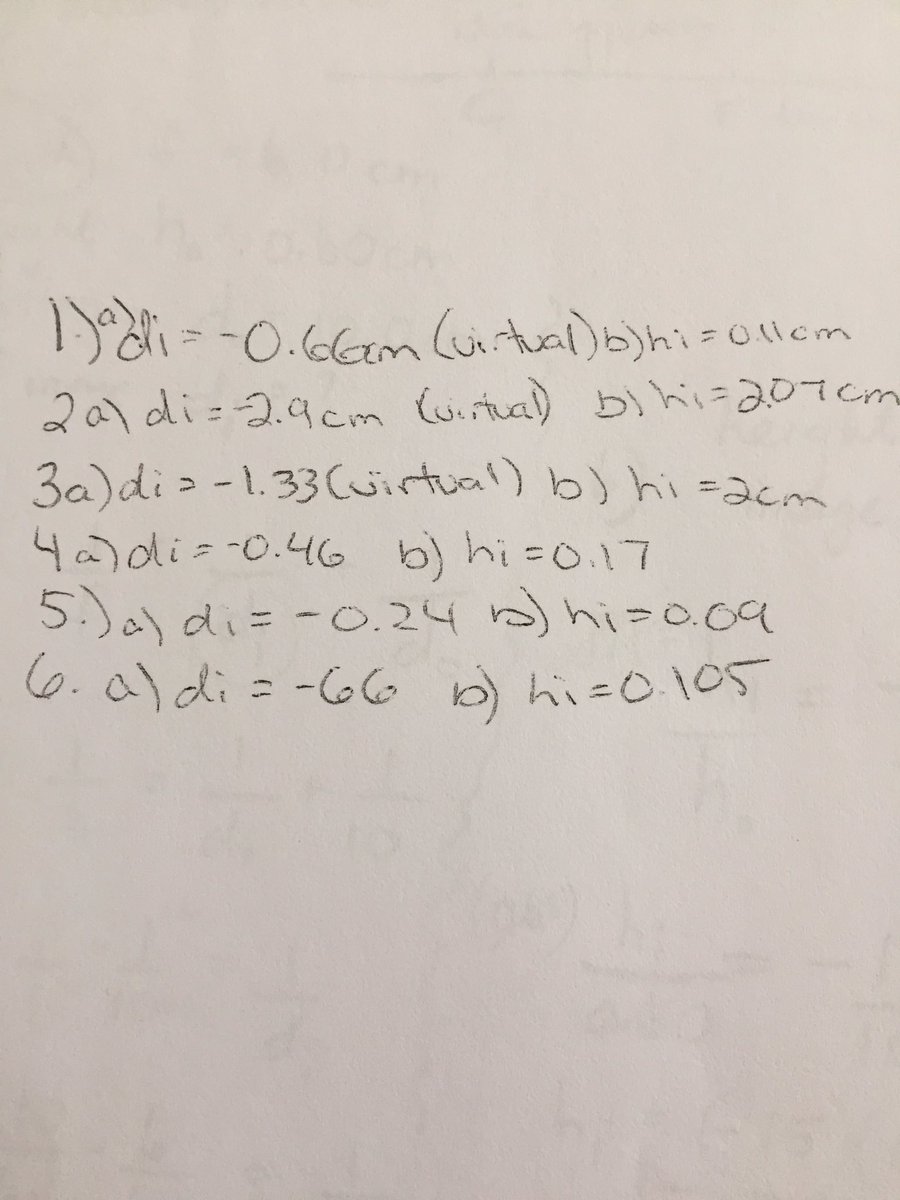 1.) a) di = -0.66cm (virtual) b) hi = 0.11cm
2a) di = -2.9cm (virtual) b) hi = 2.07cm
3a) di = -1.33 (virtual) b) hi = 2cm
4a) di = -0.46 b) hi = 0.17
5.) a) di = -0.24 b) hi = 0.09
6. a) di = -66 b) hi = 0.105